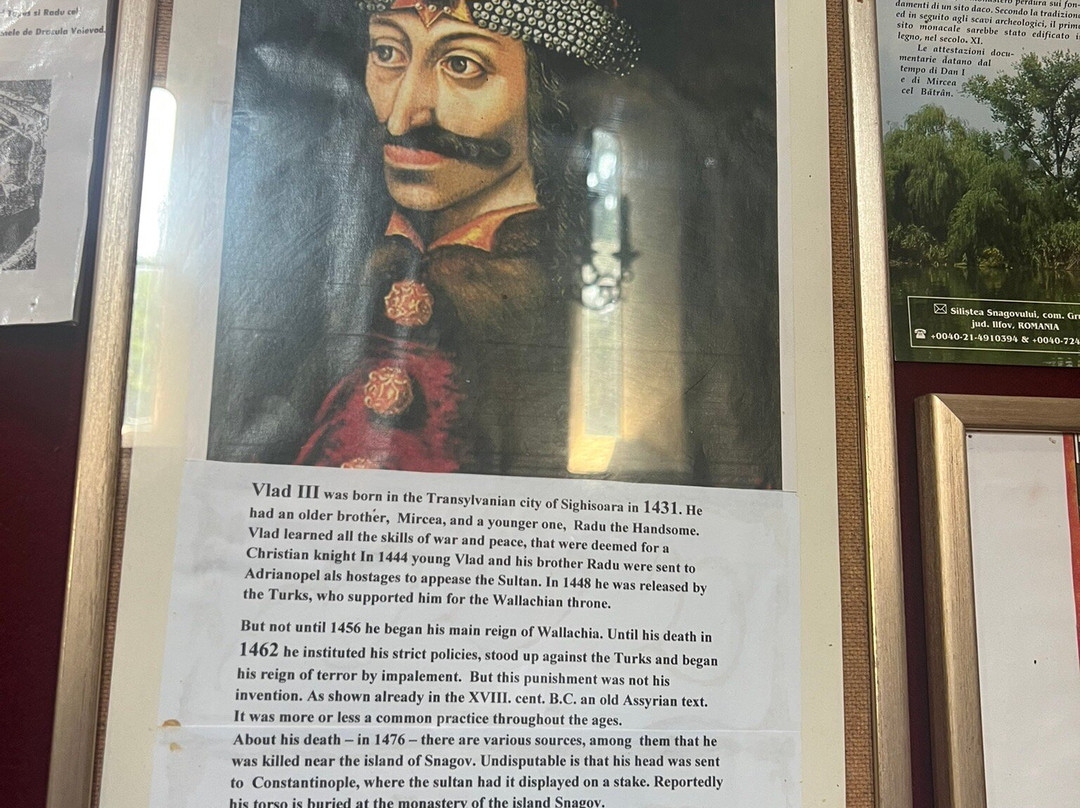 Tepes si Radu cel
mele de Dracula Voievod.
Vlad III was born in the Transylvanian city of Sighisoara in 1431. He
had an older brother, Mircea, and a younger one, Radu the Handsome.
Vlad learned all the skills of war and peace, that were deemed for a
Christian knight In 1444 young Vlad and his brother Radu were sent to
Adrianopel als hostages to appease the Sultan. In 1448 he was released by
the Turks, who supported him for the Wallachian throne.
But not until 1456 he began his main reign of Wallachia. Until his death in
1462 he instituted his strict policies, stood up against the Turks and began
his reign of terror by impalement. But this punishment was not his
invention. As shown already in the XVIII. cent. B.C. an old Assyrian text.
It was more or less a common practice throughout the ages.
About his death – in 1476 – there are various sources, among them that he
was killed near the island of Snagov. Undisputable is that his head was sent
to Constantinople, where the sultan had it displayed on a stake. Reportedly
his torso is buried at the monastery of the island Snagov.
perdura sui fon-
damenti di un sito daco. Secondo la tradizion
ed in seguito agli scavi archeologici, il prim
sito monacale sarebbe stato edificato i
legno, nel secolo. XI.
Le attestazioni docu-
mentarie datano dal
tempo di Dan I
e di Mircea
cel Bătrân.
Siliştea Snagovului, com. Gr
jud. Ilfov, ROMANIA
+0040-21-4910394 & +0040-724